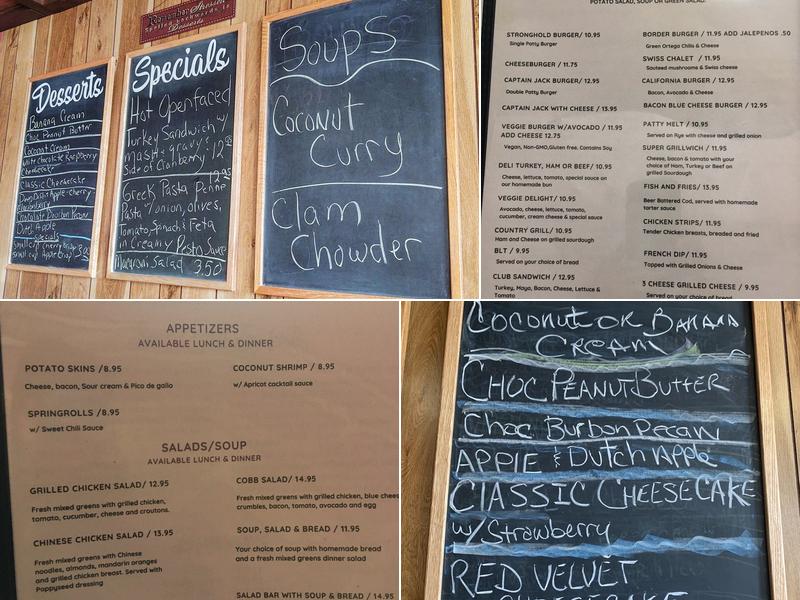 Remember Stressed
Spelled backwards is
Desserts
Desserts
Banana Cream
Choc Peanut Butter
Coconut Cream
White Chocolate Raspberry
Cheesecake
Classic Cheesecake
Deep Dish Apple-cherry
Chocolate Bourbon Pecan
Dutch Apple
Specials
Specials
Hot Openfaced
Turkey Sandwich w/
mash & gravy &
Side of Cranberry 12.95
12.95
Greek Pasta Penne
Pasta w/onion, olives,
Tomato, Spinach Feta
in Creamy Pesto Sauce
Macaroni Salad 3.50
Soups
Coconut
Curry
Clam
Chowder
POTATO SALAD, SOUP OR GREEN SALAD.
STRONGHOLD BURGER/ 10.95
Single Patty Burger
CHEESEBURGER / 11.75
CAPTAIN JACK BURGER/ 12.95
Double Patty Burger
CAPTAIN JACK WITH CHEESE / 13.95
VEGGIE BURGER W/AVOCADO / 11.95
ADD CHEESE 12.75
Vegan, Non-GMO,Gluten free. Contains Soy
DELI TURKEY, HAM OR BEEF/ 10.95
Cheese, lettuce, tomato, special sauce on
our homemade bun
VEGGIE DELIGHT/ 10.95
Avocado, cheese, lettuce, tomato,
cucumber, cream cheese & special sauce
COUNTRY GRILL/ 10.95
Ham and Cheese on grilled sourdough
BLT / 9.95
Served on your choice of bread
CLUB SANDWICH / 12.95
Turkey, Mayo, Bacon, Cheese, Lettuce &
Tomato
BORDER BURGER / 11.95 ADD JALEPENOS .50
Green Ortega Chilis & Cheese
SWISS CHALET / 11.95
Sauteed mushrooms & Swiss cheese
CALIFORNIA BURGER / 12.95
Bacon, Avocado & Cheese
BACON BLUE CHEESE BURGER / 12.95
PATTY MELT / 10.95
Served on Rye with cheese and grilled onion
SUPER GRILLWICH / 11.95
Cheese, bacon & tomato with your
choice of Ham, Turkey or Beef on
grilled Sourdough
FISH AND FRIES/ 13.95
Beer Battered Cod, served with homemade
tarter sauce
CHICKEN STRIPS/ 11.95
Tender Chicken breasts, breaded and fried
FRENCH DIP/ 11.95
Topped with Grilled Onions & Cheese
3 CHEESE GRILLED CHEESE / 9.95
Served on your choice of bread
APPETIZERS
AVAILABLE LUNCH & DINNER
POTATO SKINS /8.95
Cheese, bacon, Sour cream & Pico de gallo
SPRINGROLLS /8.95
w/ Sweet Chili Sauce
COCONUT SHRIMP / 8.95
w/ Apricot cocktail sauce
SALADS/SOUP
AVAILABLE LUNCH & DINNER
GRILLED CHICKEN SALAD/ 12.95
Fresh mixed greens with grilled chicken,
tomato, cucumber, cheese and croutons.
CHINESE CHICKEN SALAD / 13.95
Fresh mixed greens with Chinese
noodles, almonds, mandarin oranges
and grilled chicken breast. Served with
Poppyseed dressing
COBB SALAD/ 14.95
Fresh mixed greens with grilled chicken, blue chees
crumbles, bacon, tomato, avocado and egg
SOUP, SALAD & BREAD / 11.95
Your choice of soup with homemade bread
and a fresh mixed greens dinner salad
SALAD BAR WITH SOUP & BREAD / 14.95
COCONUT OR BANANA
CREAM
CHOC PEANUT BUTTER
Choc Burbon Pecan
APPLE Dutch Apple
CLASSIC CHEESECAKE
w/ Strawberry
RED VELVET
CHEESECAKE